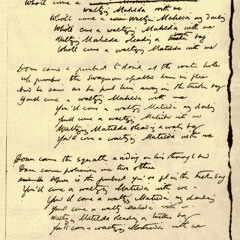 Who'll come a
waltzing Matilda with me
Who'll come a Matilda my darling
Who'll come a waltzing Matilda with me
Waltzing Matilda leading a bag
Who'll come a waltzing Matilda with me
Down came a to drink at the water hole
Up jumped the Swagman him in
And he as he put him away in the tucker bag
You'll come a waltzing Matilda with me
You'll come a waltzing Matilda my darling
You'll come a waltzing Matilda with me
Waltzing Matilda leading a water bag
You'll come a waltzing Matilda with me
Down came the Squatter a riding on his thoroughbred
Down came policemen one two three
is the you've got in the tucker bag
You'll come a waltzing Matilda with me
You'll come a waltzing Matilda my darling
You'll come a waltzing Matilda with me
Waltzing Matilda leading a bag
You'll come a waltzing Matilda with me